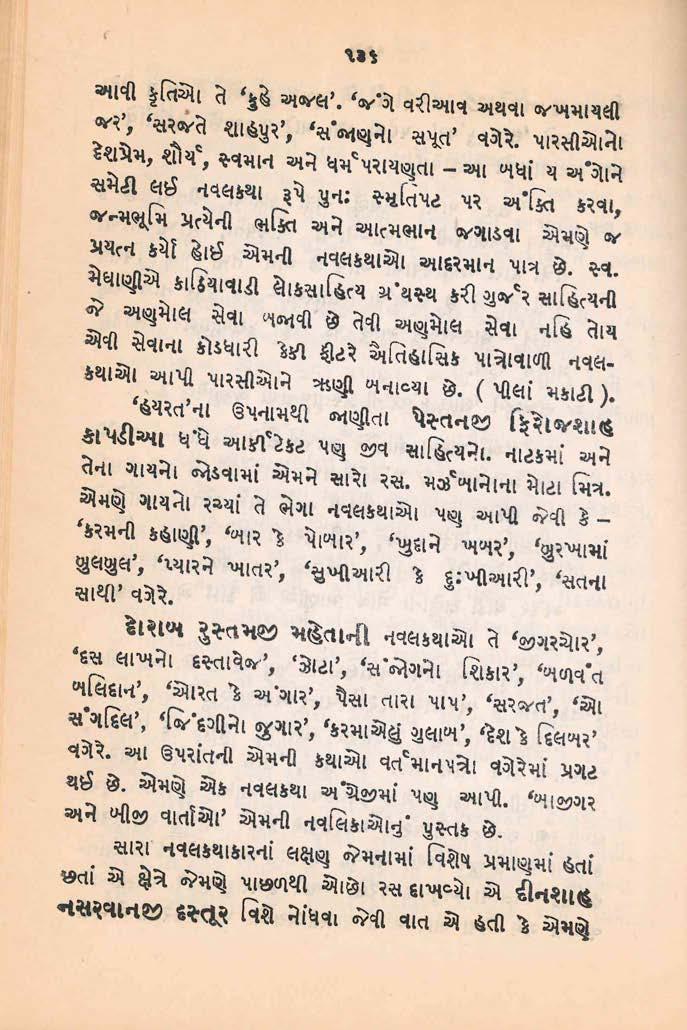 ૧૩૬
આવી કૃતિઓ તે ‘કુહે અજલ’. ‘જંગે વરીઆવ અથવા જખમાયલી
જર’, ‘સરજતે શાહપુર’, ‘સંજાણનો સપૂત’ વગેરે. પારસીઓનો
દેશપ્રેમ, શૌર્ય, સ્વમાન અને ધર્મપરાયણતા – આ બધાં ય અંગોને
સમેટી લઈ નવલકથા રૂપે પુનઃ સ્મૃતિપટ પર અંકિત કરવા,
જન્મભૂમિ પ્રત્યેની ભક્તિ અને આત્મભાન જગાડવા એમણે જ
પ્રયત્ન કર્યો હોઈ એમની નવલકથાઓ આદરમાન પાત્ર છે. સ્વ.
મેઘાણીએ કાઠિયાવાડી લોકસાહિત્ય ગ્રંથસ્થ કરી ગુર્જર સાહિત્યની
જે અણમોલ સેવા બજાવી છે તેવી અણમોલ સેવા નહિ તોય
એવી સેવાના કોડધારી કેકી ફીટરે ઐતિહાસિક પાત્રોવાળી નવલ-
કથાઓ આપી પારસીઓને ઋણી બનાવ્યા છે. ( પીલાં મકાટી ).
‘હયરત’ના ઉપનામથી જાણીતા પેસ્તનજી ફિરોજશાહ
કાપડીઆ ધંધે આર્કીટેકટ પણ જીવ સાહિત્યનો. નાટકમાં અને
તેના ગાયનો જોડવામાં એમને સારો રસ. મર્ઝબાનોના મોટા મિત્ર.
એમણે ગાયનો રચ્યાં તે ભેગા નવલકથાઓ પણ આપી જેવી કે –
‘કરમની કહાણી’, ‘બાર કે પોબાર’, ‘ખુદાને ખબર’, ‘બુરખામાં
બુલબુલ’, ‘પ્યારને ખાતર’, ‘સુખીઆરી કે દુઃખીઆરી’, ‘સતના
સાથી’ વગેરે.
દોરાબ રુસ્તમજી મહેતાની નવલકથાઓ તે ‘જીગરચોર’,
‘દસ લાખનો દસ્તાવેજ’, ‘ઝોટા’, ‘સંજોગનો શિકાર’, ‘બળવંત
બલિદાન’, ‘ઓરત કે અંગાર’, પૈસા તારા પાપ’, ‘સરજત’, ‘ઓ
સંગદિલ’, ‘જિંદગીનો જુગાર’, ‘કરમાએલું ગુલાબ’, ‘દેશ કે દિલબર’
વગેરે. આ ઉપરાંતની એમની કથાઓ વર્તમાનપત્રો વગેરેમાં પ્રગટ
થઈ છે. એમણે એક નવલકથા અંગ્રેજીમાં પણ આપી. ‘બાજીગર
અને બીજી વાર્તાઓ’ એમની નવલિકાઓનું પુસ્તક છે.
સારા નવલકથાકારનાં લક્ષણ જેમનામાં વિશેષ પ્રમાણમાં હતાં
છતાં એ ક્ષેત્રે જેમણે પાછળથી ઓછો રસ દાખવ્યો એ દીનશાહ
નસરવાનજી દસ્તૂર વિશે નોંધવા જેવી વાત એ હતી કે એમણે